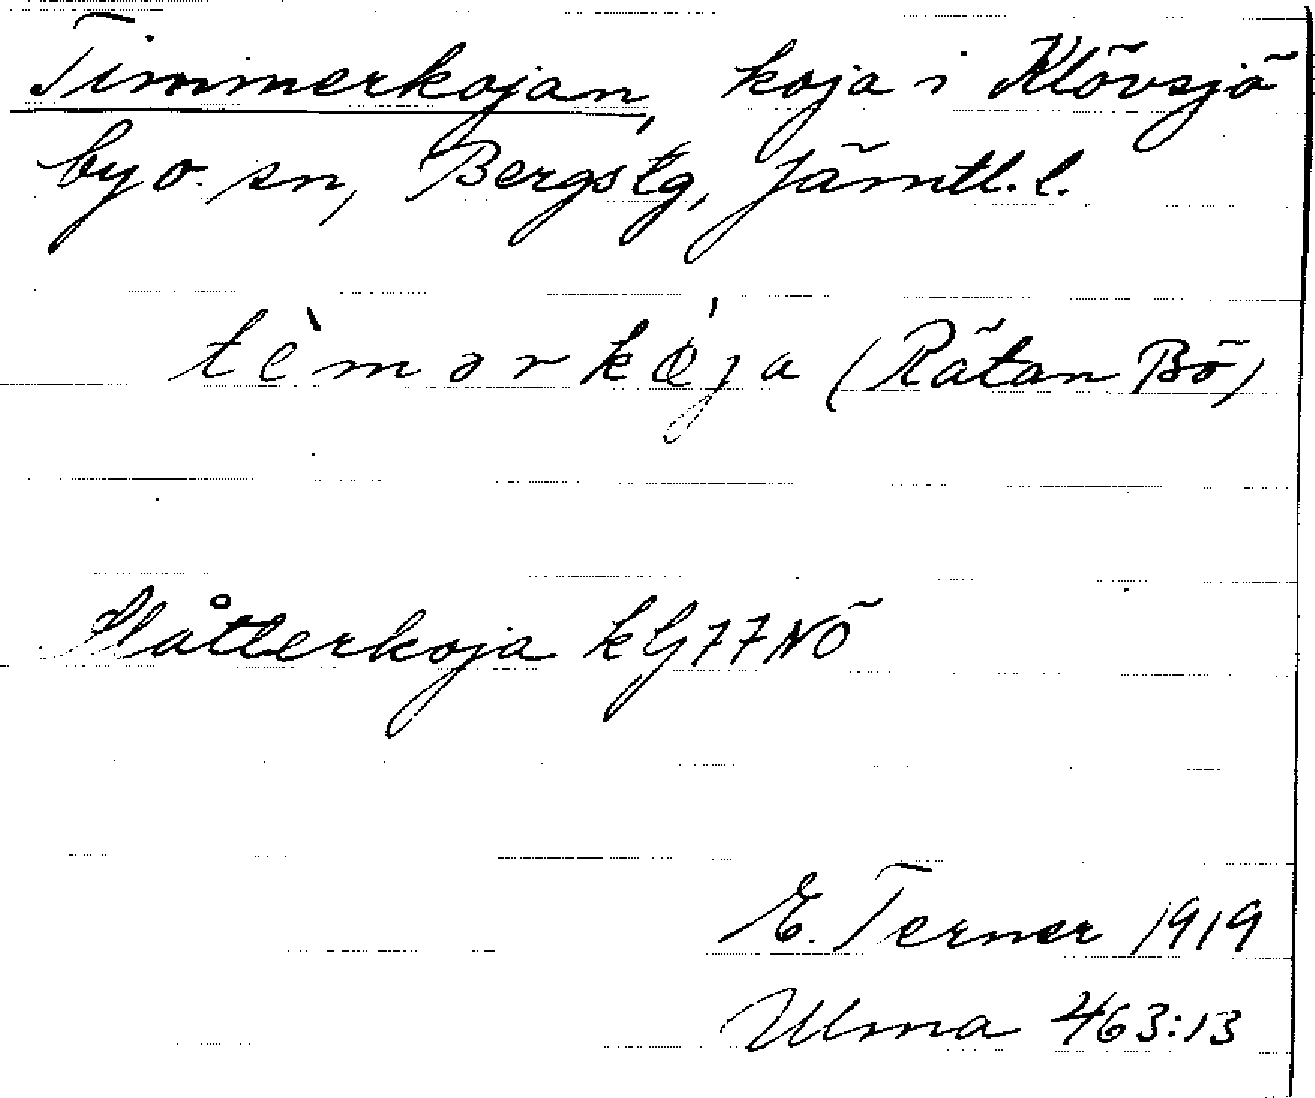 Timmerkojan, koja i Klövsjö
by o. sn, Bergs tg, Jämtl. l.
tèmərkǿja (Rätan Bö)
Slåtterkoja kG77NÖ
E. Terner 1919
Ulma 463:13